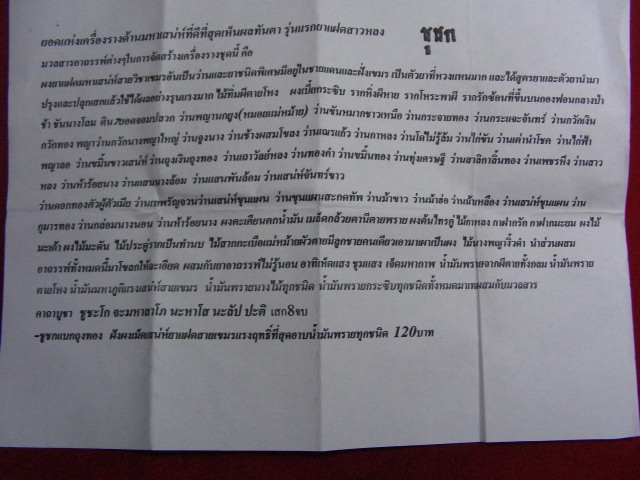 ยอดแห่งเครื่องรางด้านมหาเสน่ห์ที่ดีที่สุดเห็นผลทันตา รุ่นแรกยาแฝดสาวหลง ชูชก
มวลสารอาถรรพ์ต่างๆในการจัดสร้างเครื่องรางชุดนี้ คือ
ผงยาแฝดมหาเสน่ห์สายวิชาเขมรอันเป็นว่านและยาชนิดพิเศษมีอยู่ในชายแดนและฝั่งเขมร เป็นตัวยาที่หวงแหนมาก และได้สูตรยาและตัวยานำมา
ปรุงและปลุกเสกแล้วใช้ได้ผลอย่างรุนแรงมาก ไม้ทิ่มผีตายโหง ผงเบี้ยกระซิบ รากหิ่งผีหาย รากโหระพาผี รากรักซ้อนที่ขึ้นบนกองฟอนกลางป่า
ช้า ขันนางโลม ดิน7ยอดจอมปลวก ว่านพญานกยูง(หมอยแม่หม้าย) ว่านขันหมากขาวเหนือ ว่านกระจายทอง ว่านกระแจะจันทร์ ว่านกวักเงิน
กวักทอง พญาว่านกวักนางพญาใหญ่ ว่านจูงนาง ว่านช้างผสมโขลง ว่านเณรแก้ว ว่านกาหลง ว่านโคไม่รู้ล้ม ว่านไก่ขัน ว่านเต่านำโชค ว่านไก่ฟ้า
พญาลอ ว่านขมิ้นขาวเสน่ห์ ว่านถุงเงินถุงทอง ว่านเถาวัลย์หลง ว่านทองคำ ว่านขมิ้นทอง ว่านทุ่งเศรษฐี ว่านสาลิกาลิ้นทอง ว่านเพชรหึง ว่านสาว
หลง ว่านห้าร้อยนาง ว่านแสนนางล้อม ว่านแสนพันล้อม ว่านเสน่ห์จันทร์ขาว
ว่านดอกทองตัวผู้ตัวเมีย ว่านเทพรัญจวนว่านเสน่ห์ขุนแผน ว่านขุนแผนสะกดทัพ ว่านม้าขาว ว่านม้าฮ่อ ว่านม้าเหลือง ว่านเสน่ห์ขุนแผน ว่าน
กุมารทอง ว่านกล่อมนางนอน ว่านห้าร้อยนาง ผงตะเคียนตกน้ำมัน เมล็ดกล้วยตานีตายพราย ผงต้นไทรคู่ ไม้กาหลง กาฝากรัก กาฝากมะยม ผงไม้
มะเดื่อ ผงไม้มะดัน ไม้ประตู่รากเป็นทำนบ ไม้สากกะเบือแม่หม้ายผัวตายมีลูกชายคนเดียวเอามาเผาเป็นผง ไม้นางพญางิ้วดำ นำส่วนผสม
อาถรรพ์ทั้งหมดนี้มาโขลกให้ละเอียด ผสมกับยาอาถรรพ์ไม่รู้นอน อาทิเห็ดแสง ชุมแสง เจ็ดมหากาฬ น้ำมันพรายจากผีตายทั้งกลม น้ำมันพราย
ตายโหง น้ำมันมหาภูติแรงเสน่ห์สายเขมร น้ำมันพรายนางไม้ทุกชนิด น้ำมันพรายกระซิบทุกชนิดทั้งหมดมาเทผสมกับมวลสาร
คาถาบูชา ชูชะโก จะมหาลาโภ นะหาโส นะลัป ปะติ เสก8จบ
-ชูชกแบกถุงทอง ฝังผงเม็ดเสน่ห์ยาแฝดสายเขมรแรงฤทธิ์ที่สุดอาบน้ำมันพรายทุกชนิด 120บาท